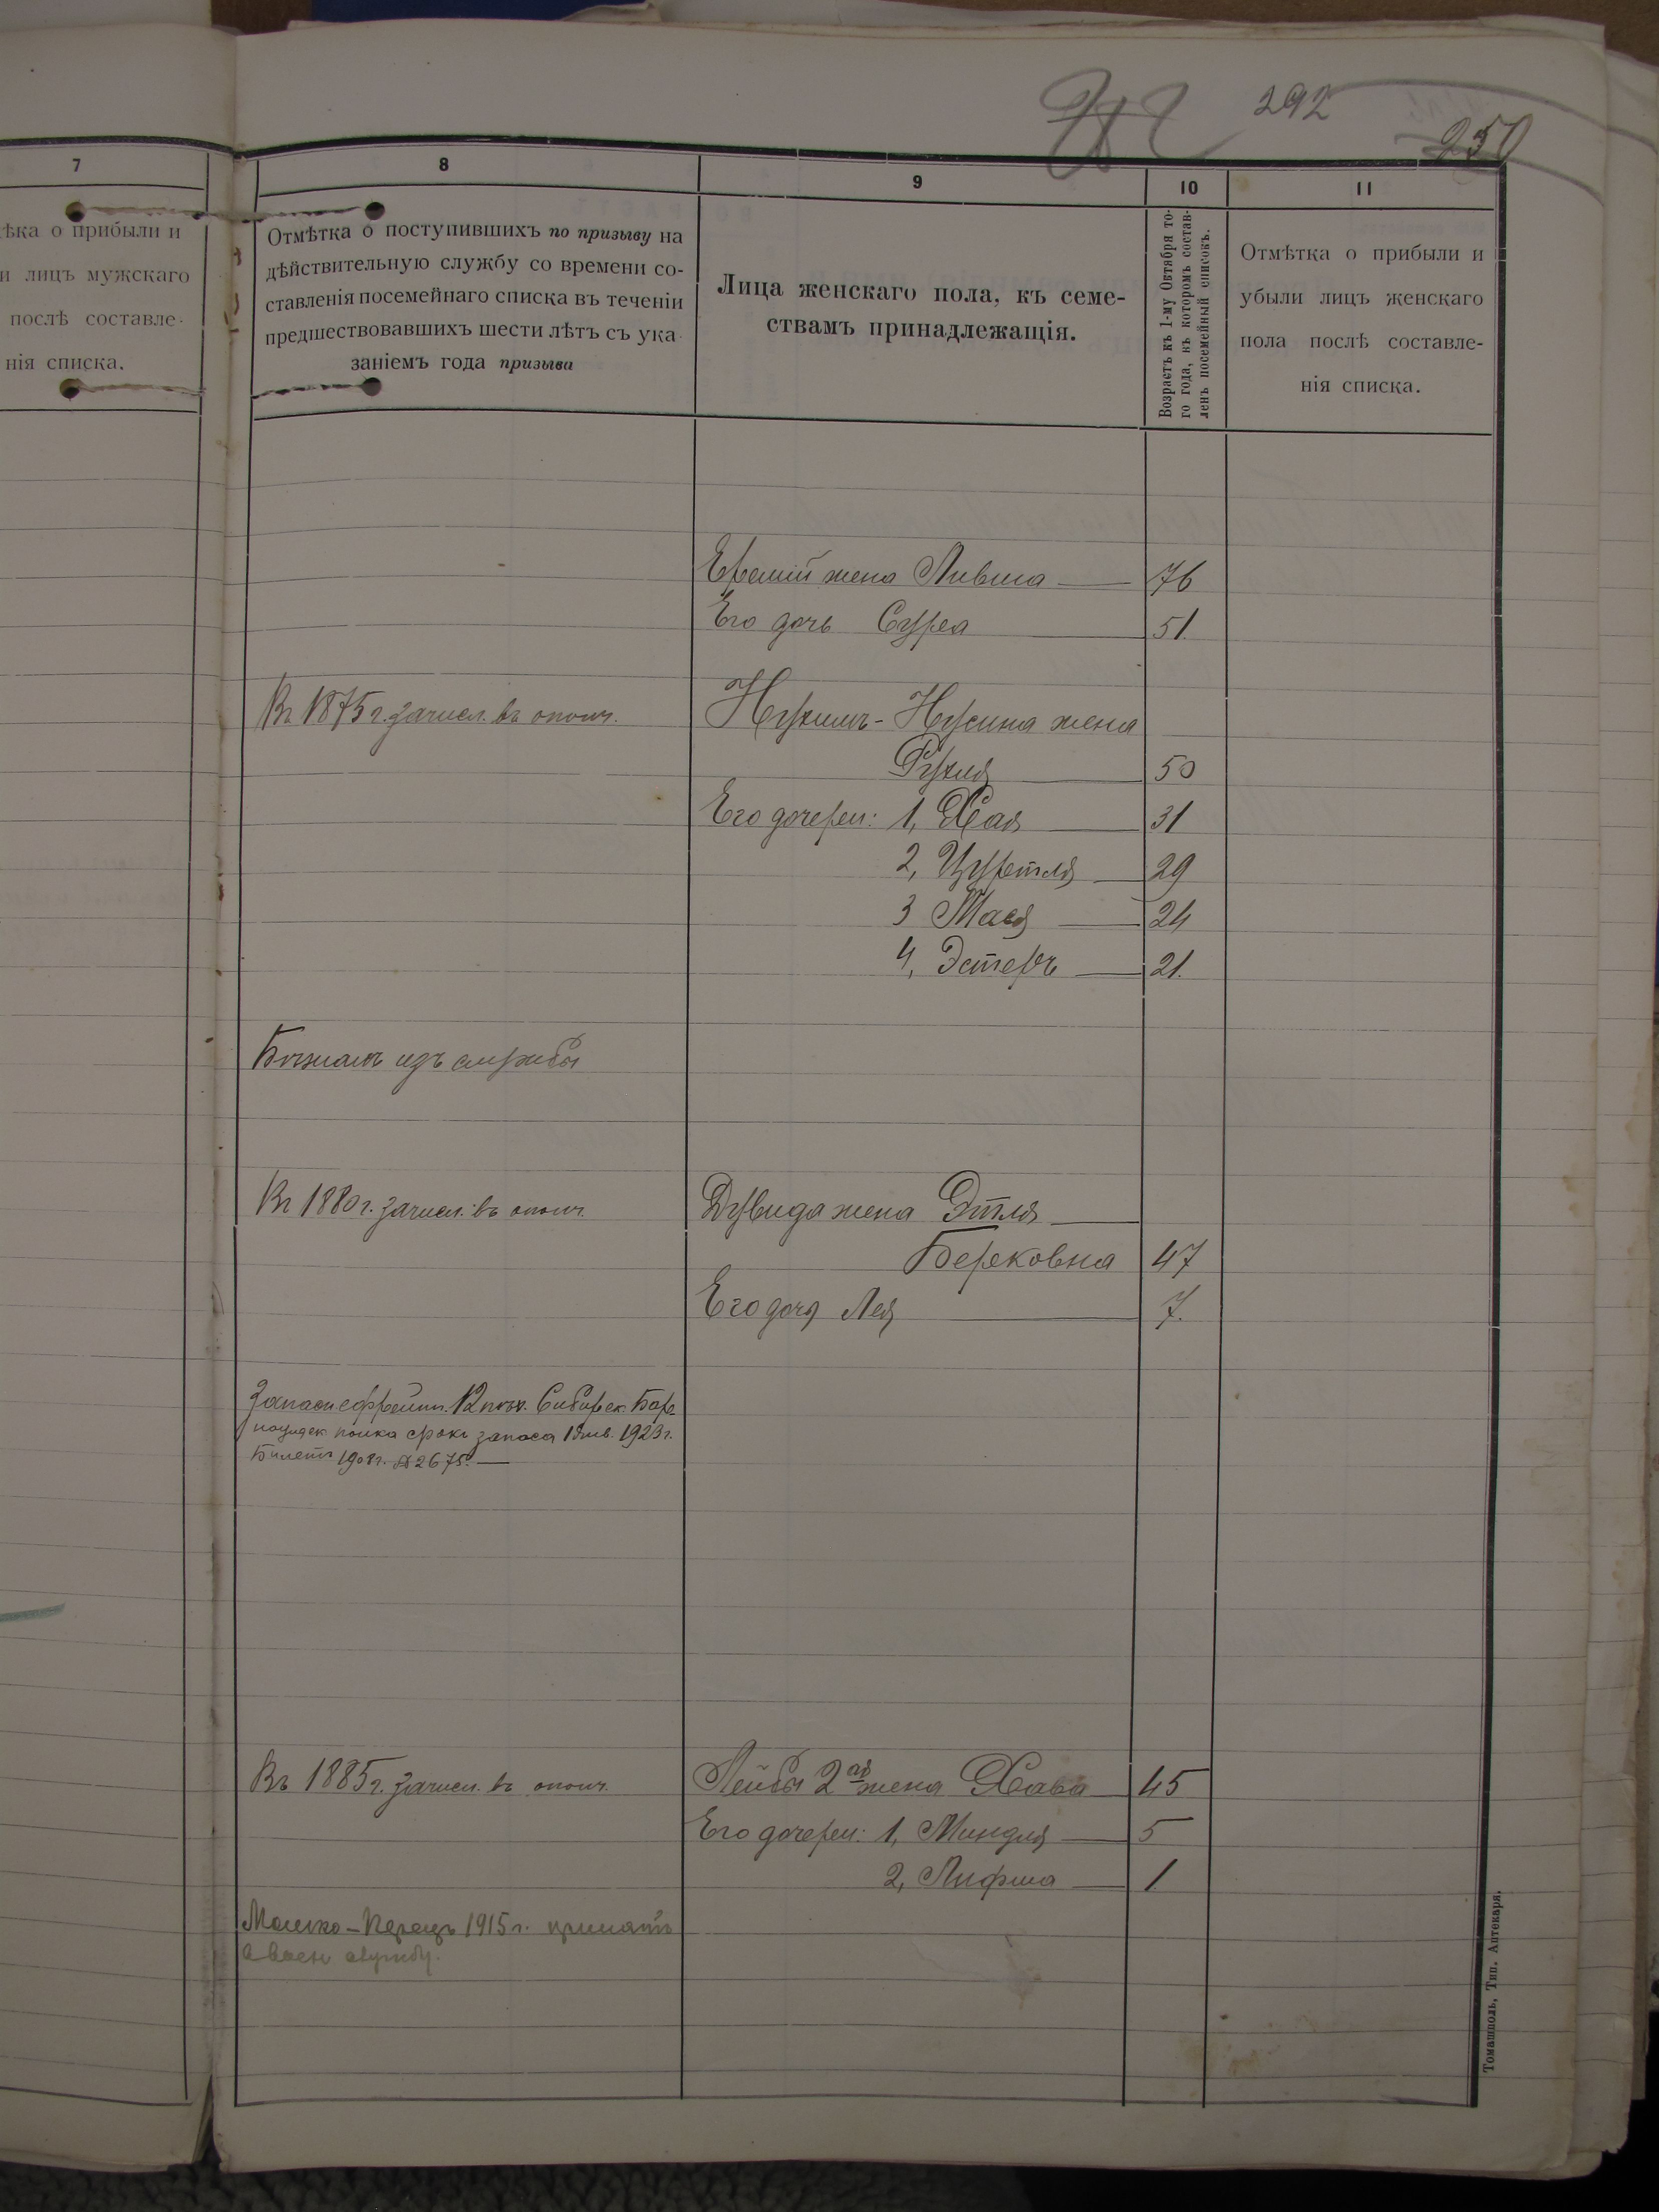 292
250
7
8
9
10
11
ѣка о прибыли и
и лицъ мужскаго
послѣ составле-
нія списка.
Отмѣтка о поступившихъ по призыву на
дѣйствительную службу со времени со-
ставленія посемейнаго списка въ теченіи
предшествовавшихъ шести лѣтъ съ ука-
заніемъ года призыва
Лица женскаго пола, къ семе-
ствамъ принадлежащія.
Возрастъ къ 1-му Октября то-
го года, къ которомъ состав-
ленъ посемейный списокъ.
Отмѣтка о прибыли и
убыли лицъ женскаго
пола послѣ составле-
нія списка.
жена Ливша 76
Его дочь Сура 51
Въ 1875 г. зачисл. въ ополч.
Нухимъ-Нусина жена
Рухля 50
Его дочери: 1, Хая 31
2, Цуртля 29
3 Мася 24
4, Эстеръ 21.
Бѣжалъ изъ службы
Въ 1880 г. зачисл. въ ополч.
Дувида жена Этля
Берековна 47
Его дочь Лея 7.
Запасн. ефрейт. 12 пѣх. Сибирск. Бар-
наульск полка срокъ запаса 1 янв. 1923 г.
Билетъ 1908 г. № 2675.
Въ 1885 г. зачисл. въ ополч.
Лейбы 2ая жена Хава 45
Его дочери: 1, Миндля 5
2, Лифша 1
Мошко-Перецъ 1915 г. принятъ
службу.
Томашполь, Тип. Аптекаря.